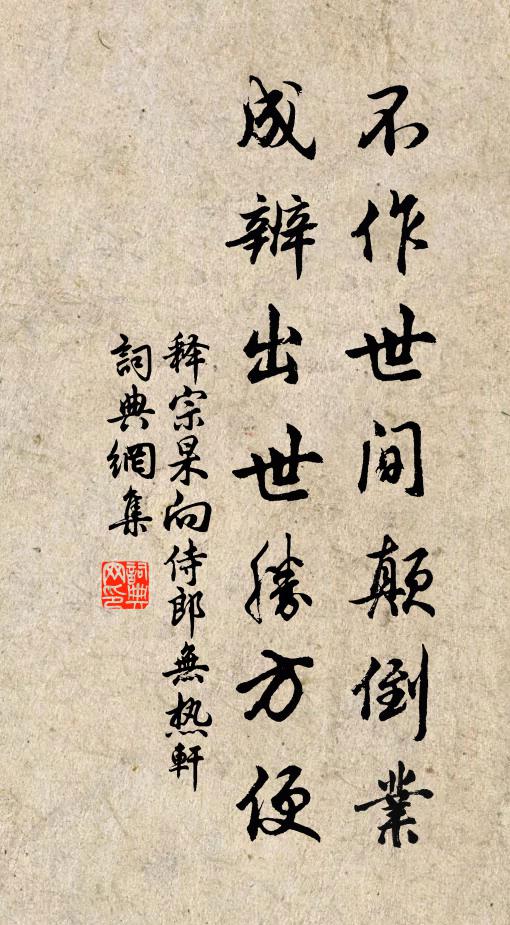 不作世間颠倒業
成辨出世勝方便
释宗杲向侍郎無热軒
詞典網集
詞典
网印